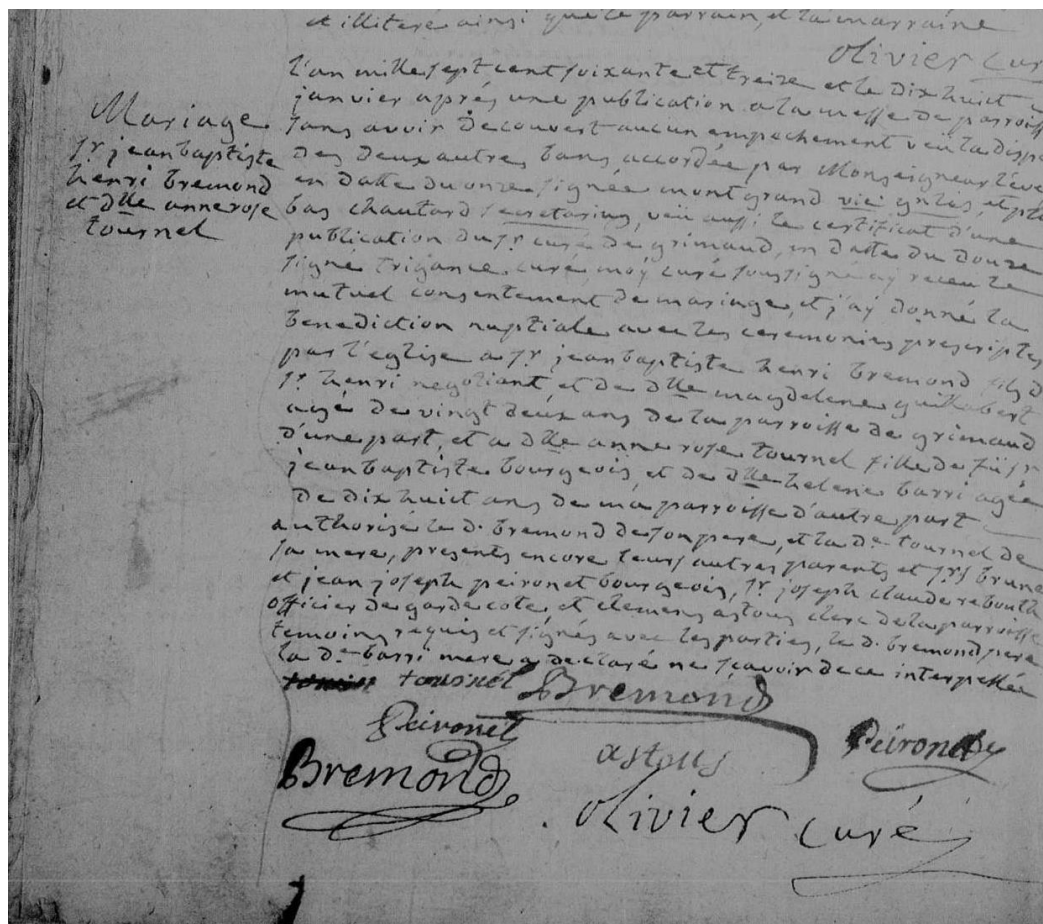 et illiteré ainsi que le parrain, et la marraine
olivier cur
l'an mille sept cent soixante et treize et le dix huict
janvier aprés une publication a la messe de parroiss
sans avoir decouvert aucun empechement veu la dispe
des deux autres bans accordée par Monseigneur l'eve
en datte du onze signée montgrand vic gnles, et plu
bas chautard secretarius, veü aussi le certificat d'une
publication du sr. curé de grimaud, en datte du douze
signé trigance curé, moy curé soussigné ay receu le
mutuel consentement de mariage, et j'ay donné la
benediction nuptiale avec les ceremonies prescriptes
par l'eglise a sr. jean baptiste henri bremond fils d
sr. henri negotiant et de dlle magdelene guillabert
agé de vingt deux ans de la parroisse de grimaud
d'une part, et a dlle anne rose tournel fille de fü sr
jean baptiste bourgeois, et de dlle helene barri agée
de dix huict ans de ma parroisse d'autre part
authorisé le d. bremond de son pere, et la de. tournel de
sa mere, presents encore leurs autres parents et srs brune
et jean joseph peironet bourgeois, sr. joseph claude rebouth
officier de garde cote, et clemens astous clerc de la parroisse
temoins requis et signés avec les parties, le d. bremond pere
la de. barri mere a declaré ne scavoir de ce interpellée
Mariage
sr. jean baptiste
henri bremond
et dlle anne rose
tournel
tournel Bremond
Peironet
astous
Peironet
Bremond
olivier curé